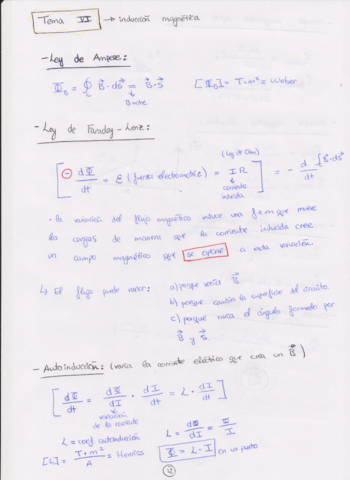 Tema VI → inducción magnética
- Ley de Ampere:
Φ_B = ∮_C B⃗ · ds⃗ = B⃗ · S⃗ [Φ_B] = T·m² = Weber
↓
B ⊥ cte
- Ley de Faraday - Lenz:
(Ley de Ohm)
[ ⊖ dΦ/dt = ε (fuerza electromotriz) = I R ] = - d/dt ∫ B⃗ · dS⃗
↓
corriente
inducida
· la variación del flujo magnético induce una f.e.m que mueve
las cargas de manera que la corriente inducida cree
un campo magnético que se opone a esta variación.
↳ El flujo puede variar: a) porque varía B⃗
b) porque cambia la superficie del circuito.
c) porque varía el ángulo formado por
B⃗ y S⃗.
- Autoinducción: (varía la corriente eléctrica que crea un B⃗)
[ dΦ/dt = dΦ/dI · dI/dt = L · dI/dt ]
↓
variación
de la corriente
L = coef autoinducción L = dΦ/dI = Φ/I
[L] = T·m²/A = Henrios Φ = L · I en un punto
12